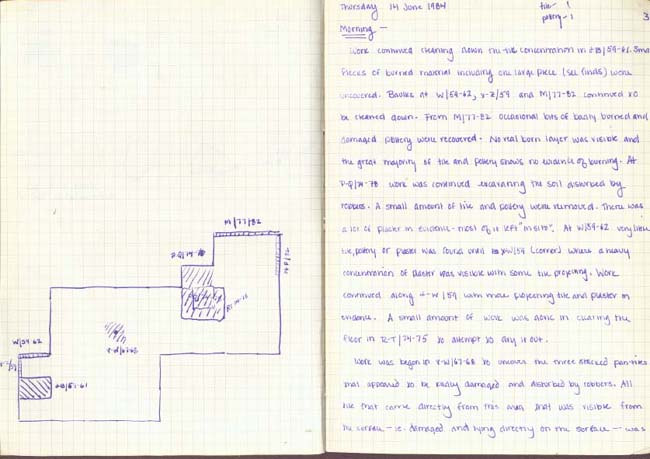 M/77/82
W/59-62
Thursday 14 June 1984
tile - 1
pottery - 1
3
Morning -
Work continued cleaning down the tile concentration in /59-61. Small
pieces of burned material including one large piece (see finds) were
uncovered. Baulks at W/59-62, X-Z/59 and M/77-82 continued to
be cleaned down. From M/77-82 occasional bits of badly burned and
damaged pottery were recovered. No real born layer was visible and
the great majority of tile and pottery shows no evidence of burning. At
work was continued excavating the soil disturbed by
robbers. A small amount of tile and pottery were removed. There was
a lot of plaster in evidence - most of it left "in situ". At W/59-62 very little
tile, pottery or plaster was found until W/59 (corner) where a heavy
concentration of plaster was visible with some tile projecting. Work
continued along W/59 with more projecting tile and plaster in
evidence. A small amount of work was done in clearing the
floor in R-T/74-75 to attempt to dry it out.
Work was begun in V-W/67-68 to uncover the three stacked pan-tiles
that appeared to be badly damaged and disturbed by robbers. All
tile that came directly from this area that was visible from
the surface - ie. damaged and lying directly on the surface - was